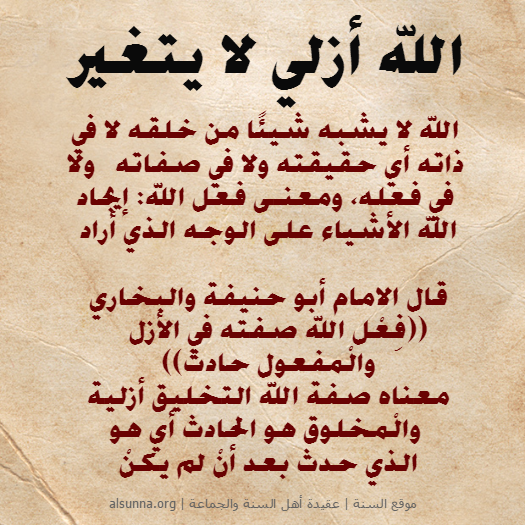 الله أزلي لا يتغير
الله لا يشبه شيئًا من خلقه لا في
ذاته أي حقيقته ولا في صفاته ولا
في فعله، ومعنى فعل الله: إيجاد
الله الأشياء على الوجه الذي أراد
قال الامام أبو حنيفة والبخاري
((فِعْل الله صفته في الأزل
والْمفعول حادث))
معناه صفة الله التخليق أزلية
والْمخلوق هو الحادث أي هو
الذي حدث بعد أنْ لم يكنْ
موقع السنة | عقيدة أهل السنة والجماعة | alsunna.org